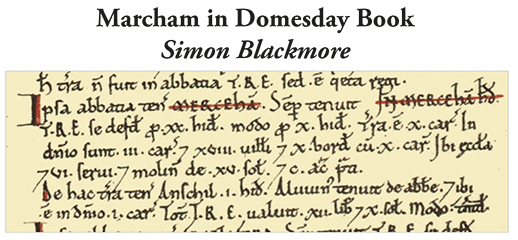 Marcham in Domesday Book
Simon Blackmore
h̃ tr̃a ñ fuit in abbatia T.R.E. sed. ē q̇eta regi.
Ipsa abbatia teñ MERCEHĀ. Sēp tenuit IN MERCEHĀ HD̃.
T.R.E. se defd̃ ꝓ .xx. hid̃. modo ꝓ .x. hid̃. Tr̃a .ē .x. car̃. In
dñio sunt .iii. car̃. ⁊ xviii. uilli ⁊ x. bord̃ cū .x. car̃. Ibi
⁊ vi. serui. ⁊ molin̄ de .xv. sol̃. ⁊ c. ac̃ p̃ti.
De hac tr̃a ten̄ Anschil .i. hid̃. Aluuin̄ tenuit de abb̃e. ⁊ ibi
ē in dñio .i. car̃. Tot̃ T.R.E. ualuit .xii. lib̃ ⁊ x. sol̃. Modo